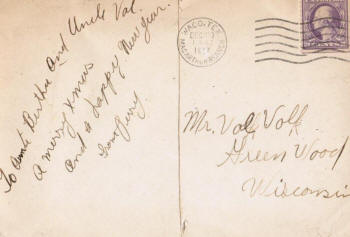 To Aunt Bertha And Uncle Val.
A merry xmas
And a happy New year.
from
WACO, TEX.
DEC
MACARTHUR BRANCH
Mr. Val. Volk
Green Wood
Wisconsin